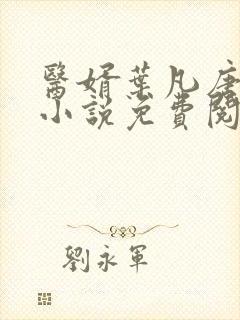 醫婿葉凡唐
小說免費閱
劉永軍